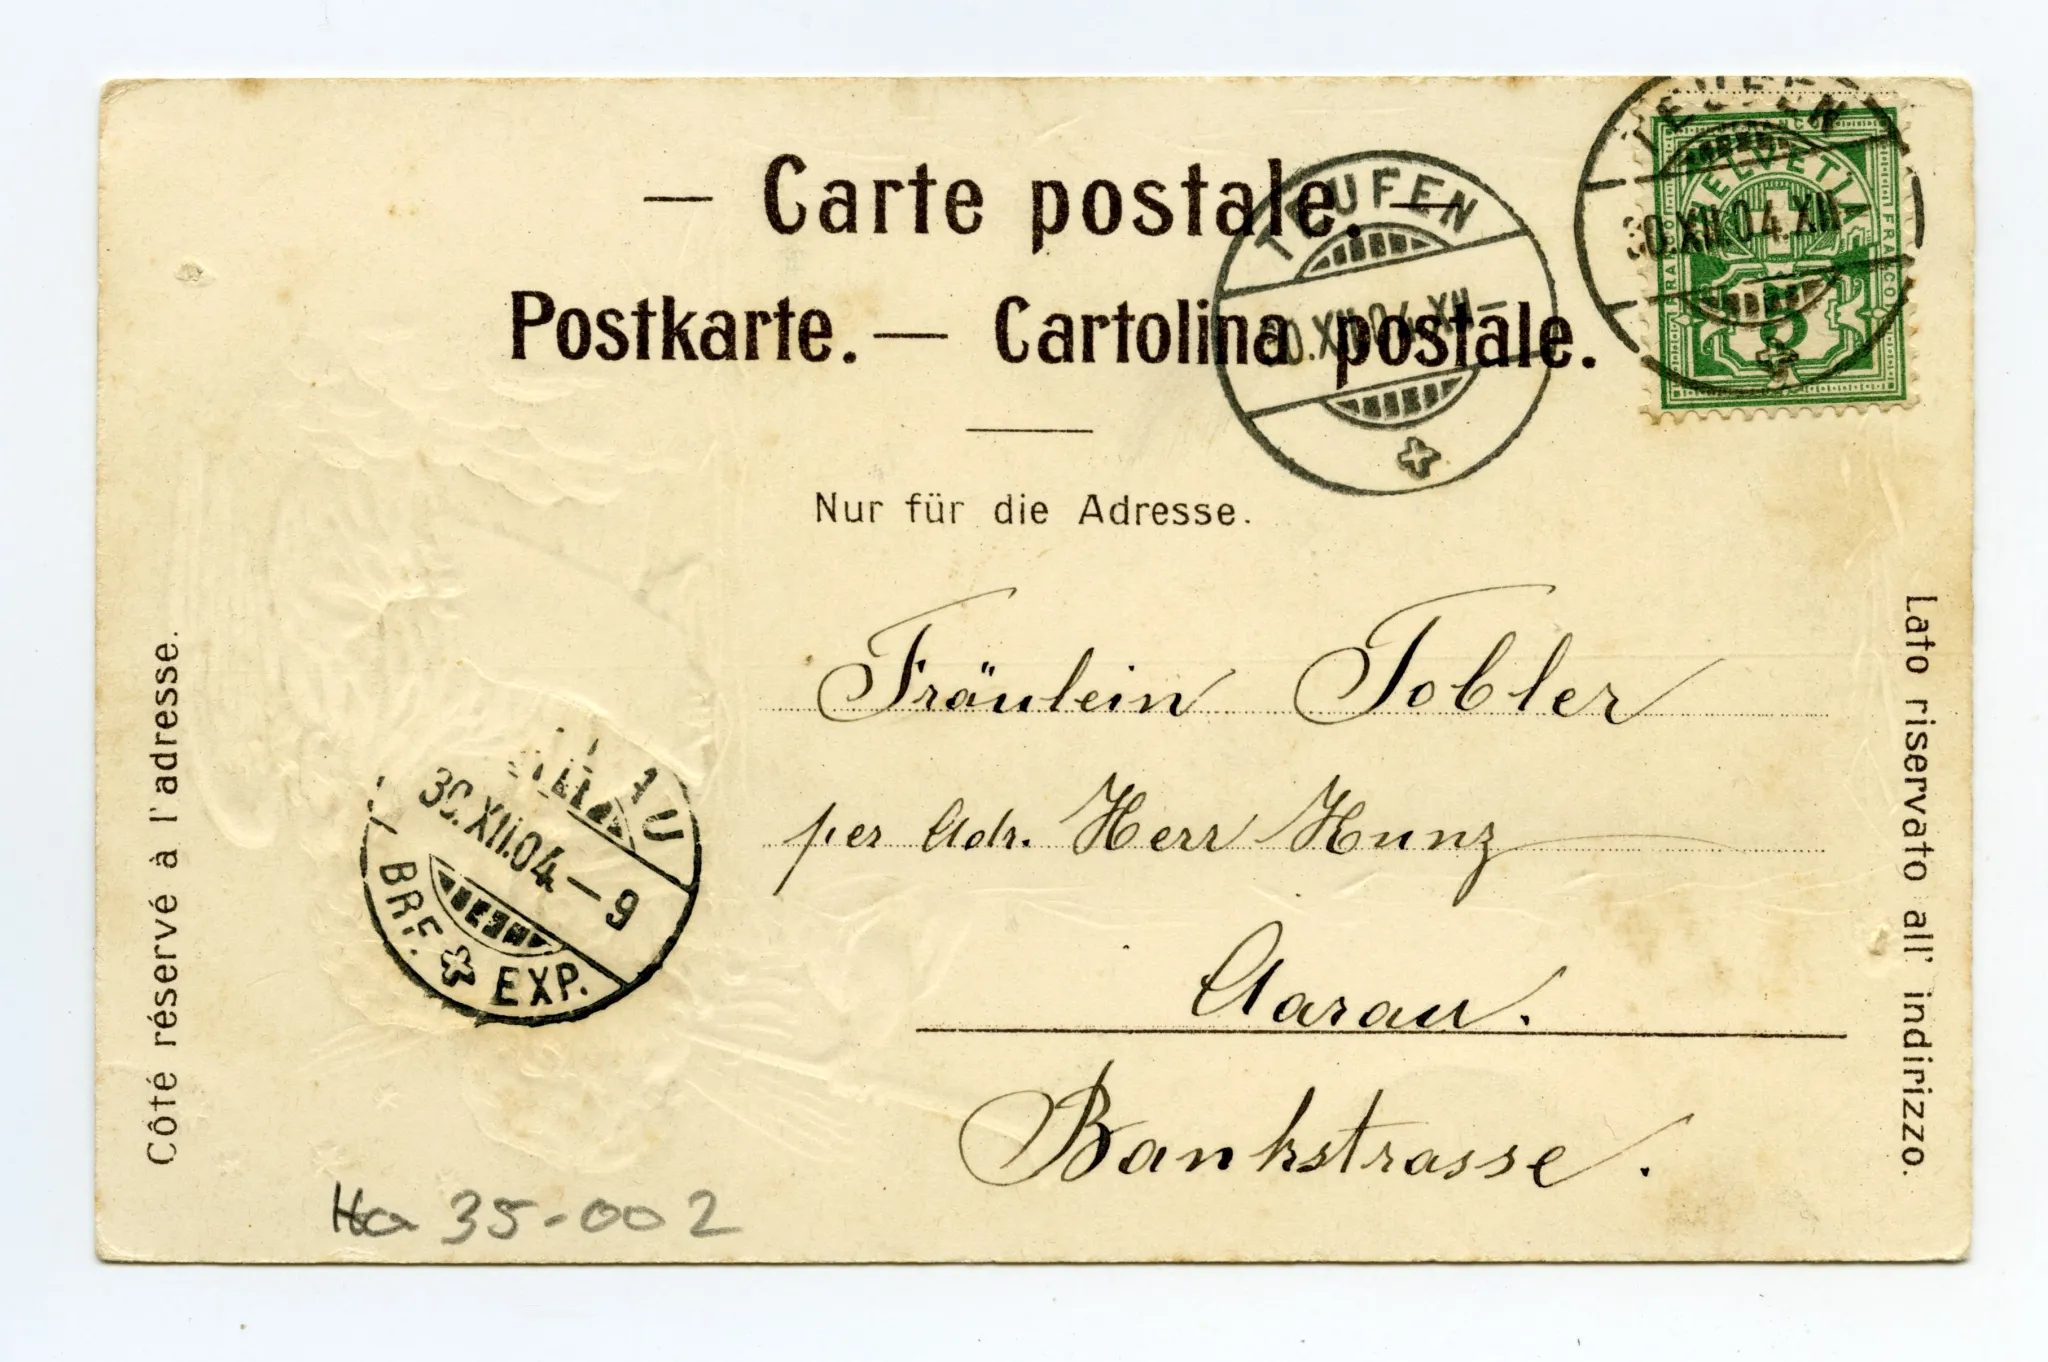 — Carte postale. —
Postkarte. — Cartolina postale.
TEUFEN
30.XII.04.XII-
TEUFEN
30.XII.04.XII
FRANCO
HELVETIA
FRANCO
FRANCO
5
Nur für die Adresse.
Côté réservé à l'adresse.
Lato riservato all' indirizzo.
Fräulein Tobler
per Adr. Herr Kunz
Aarau.
Bankstrasse.
30.XII.04.-9
BRF. EXP.
35-002